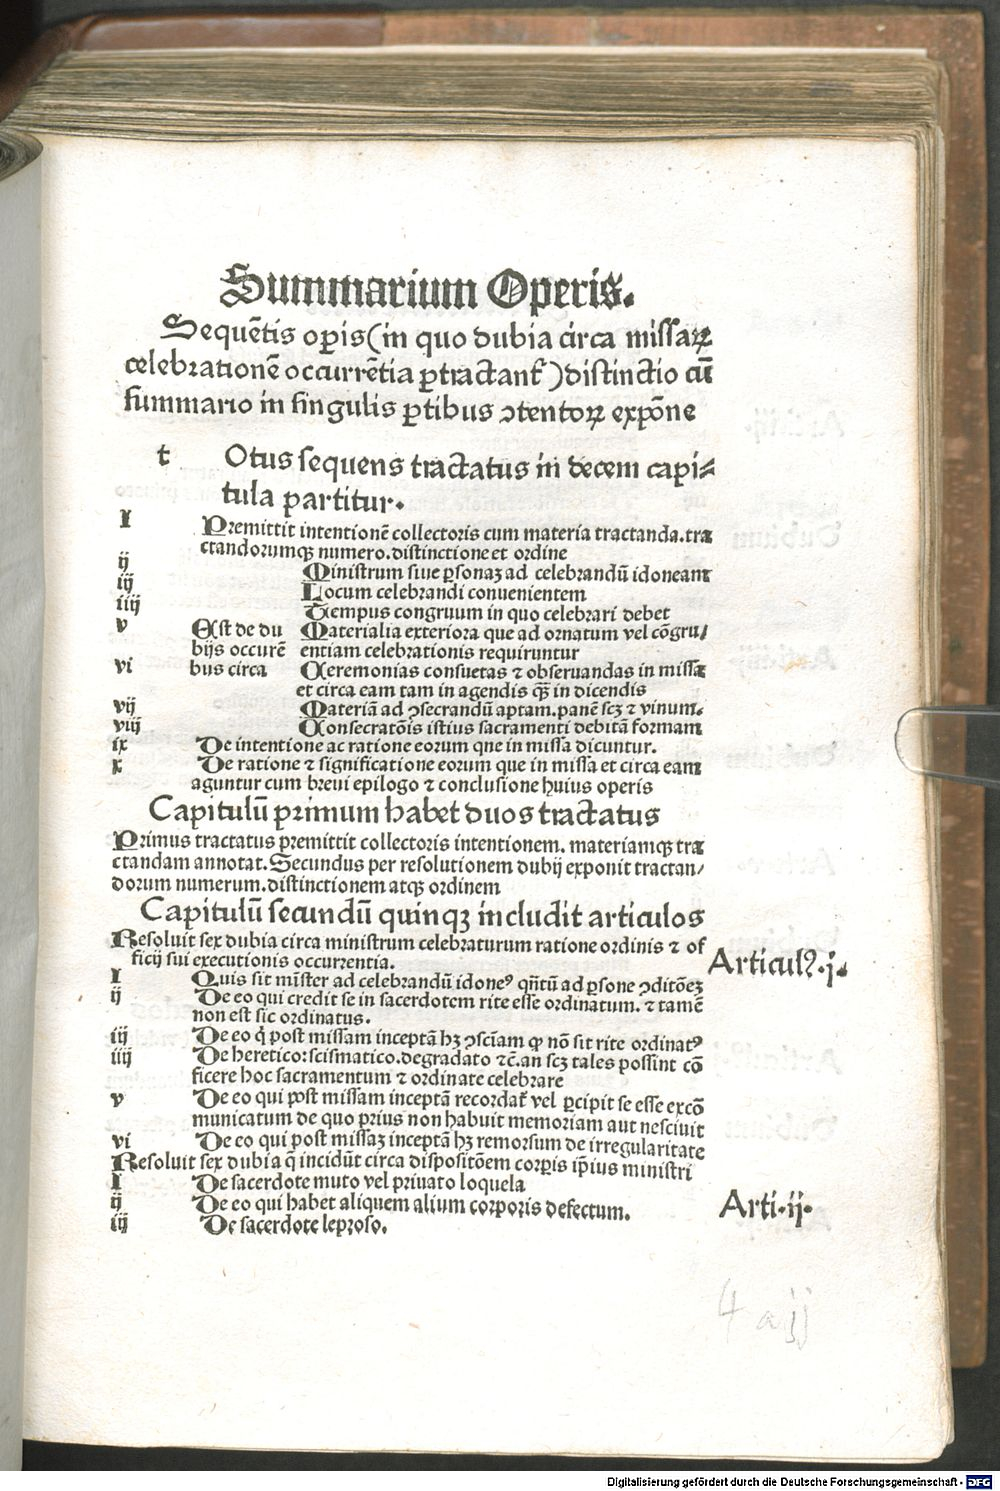 Summarium Operis.
Sequētis oꝑis (in quo dubia circa missaꝝ
celebrationē occurrētia ꝑtractant᷑) distinctio cū
summario in singulis ꝑtibus ↄtentoꝝ expōne
t Otus sequens tractatus in decem capi⸗
tula partitur.
I Premittit intentionē collectoris cum materia tractanda. tra
ctandorumqꝫ numero. distinctione et ordine
ij Ministrum siue ꝑsonaꝫ ad celebrandū idoneam
iij Locum celebrandi conuenientem
iiij Tempus congruum in quo celebrari debet
v Est de du Materialia exteriora que ad ornatum vel cōgru/
bijs occurē entiam celebrationis requiruntur
vi bus circa Ceremonias consuetas ⁊ obseruandas in missa
et circa eam tam in agendis qꝫ in dicendis
vij Materiā ad ↄsecrandū aptam. panē scꝫ ⁊ vinum.
viij Consecratōis istius sacramenti debitā formam
ix De intentione ac ratione eorum que in missa dicuntur.
x De ratione ⁊ significatione eorum que in missa et circa eam
aguntur cum breui epilogo ⁊ conclusione huius operis
Capitulū primum habet duos tractatus
Primus tractatus premittit collectoris intentionem. materiamqꝫ tra
ctandam annotat. Secundus per resolutionem dubij exponit tractan/
dorum numerum. distinctionem atqꝫ ordinem
Capitulū secundū quinqꝫ includit articulos
Resoluit sex dubia circa ministrum celebraturum ratione ordinis ⁊ of
ficij sui executionis occurrentia. Articulꝰ. j.
I Quis sit mister ad celebrandū idoneꝰ qn̄tū ad ꝑsone ↄditōeꝫ
ij De eo qui credit se in sacerdotem rite esse ordinatum. ⁊ tamē
non est sic ordinatus.
iij De eo q̇ post missam inceptā hꝫ ↄsciam ꝙ nō sit rite ordinatꝰ
iiij De heretico: scismatico. degradato ⁊c̄. an scꝫ tales possint cō
ficere hoc sacramentum ⁊ ordinate celebrare
v De eo qui post missam inceptā recordat᷑ vel ꝑcipit se esse excō
municatum de quo prius non habuit memoriam aut nesciuit
vi De eo qui post missaꝫ inceptā hꝫ remorsum de irregularitate
Resoluit sex dubia q̄ incidūt circa dispositōem corꝑis ip̄ius ministri
I De sacerdote muto vel priuato loquela
ij De eo qui habet aliquem alium corporis defectum. Arti. ij.
iij De sacerdote leproso.
4 a jj
Digitalisierung gefördert durch die Deutsche Forschungsgemeinschaft - DFG